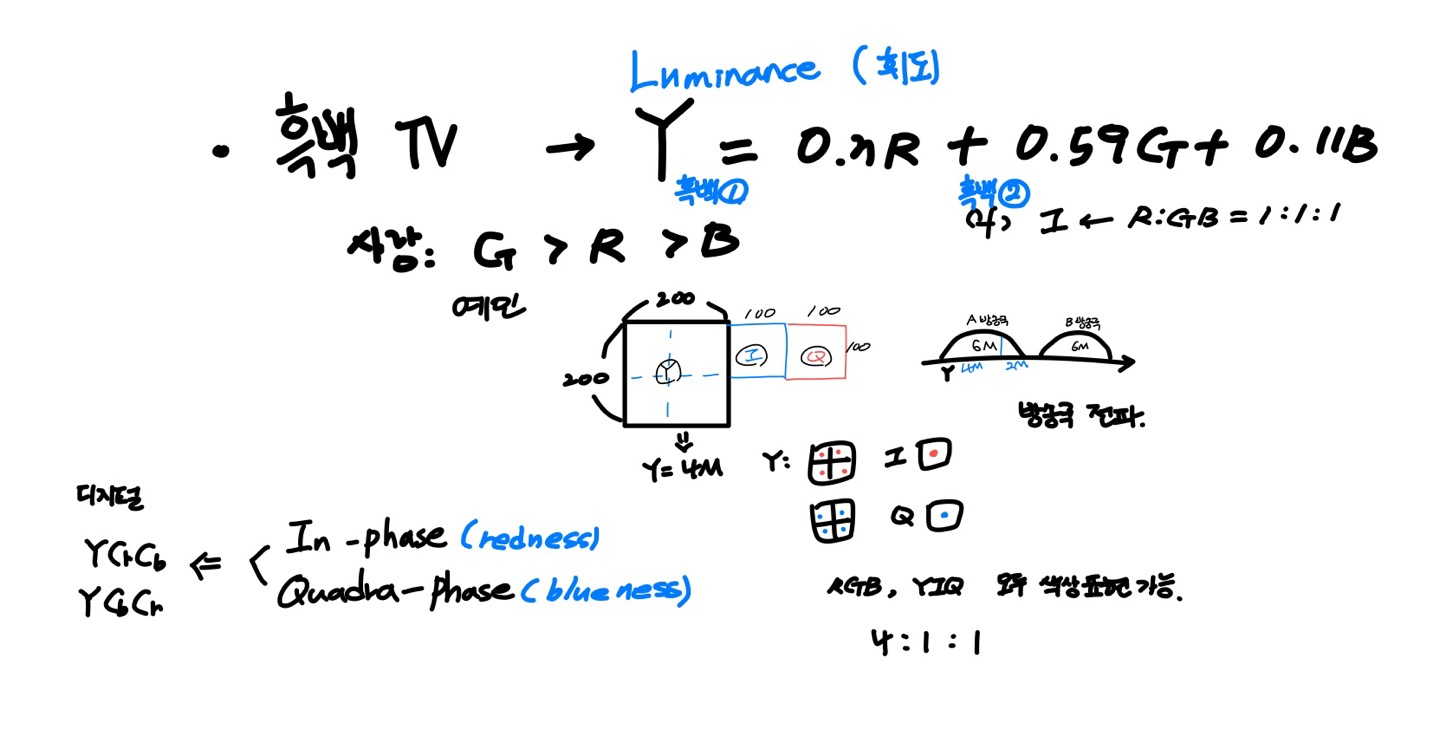 Luminance (휘도)
· 흑백 TV → Y = 0.nR + 0.59G + 0.11B
흑백① 흑백②
사람: G > R > B
I ← R:GB = 1:1:1
예민
200
100 100
A방송국 B방송국
200 Y I Q 100
6M 6M
Y 4M 2M
방송국 전파.
Y = 4M
Y: I
Q
디지털
YCrCb ⇐ < In-phase (redness)
YCbCr Quadra-phase (blueness)
RGB, YIQ 모두 색상표현가능.
4 : 1 : 1